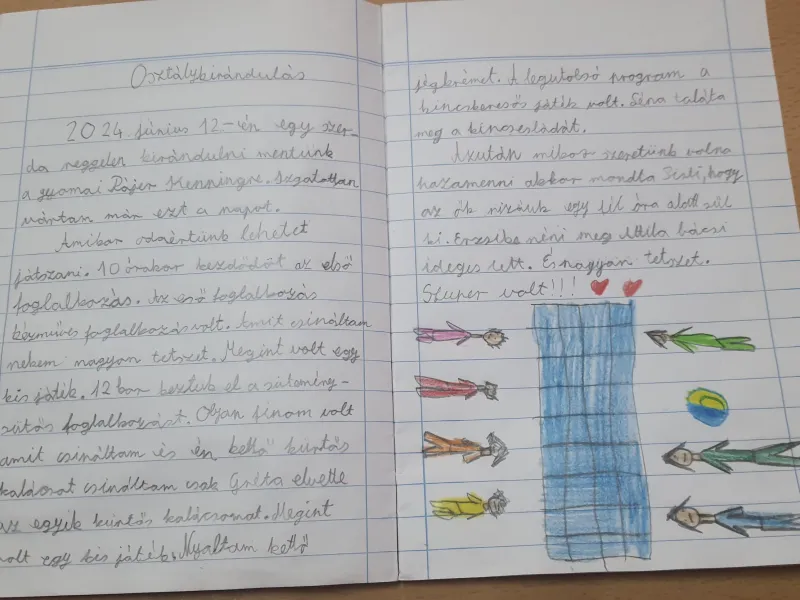 Osztálykirándulás
2024. június 12-én egy szer-
da reggelen kirándulni mentünk
a gyomai Pájer Kempingre. Izgatottan
vártam már ezt a napot.
Amikor odaértünk lehetet
játszani. 10 órakor kezdődöt az első
foglalkozás. Az eső foglalkozás
kézműves foglalkozás volt. Amit csináltam
nekem nagyon tetszet. Megint volt egy
kis játék. 12 kor keztük el a sütemény-
sütős foglalkozást. Olyan finom volt
amit csináltam és én kettő kürtös
kalácsot csináltam csak Gréta elvette
az egyik kürtös kalácsomat. Megint
volt egy kis játék. Nyaltam kettő
jégkrémet. A legutolsó program a
kincskeresős játék volt. Séna találta
meg a kincsesládát.
Azután mikor szeretünk volna
hazamenni akkor mondta hogy
az ők rizsük egy fél óra alatt sül
ki. Erzsike néni meg Attila bácsi
ideges lett. Es nagyon tetszet.
Szuper volt!!!